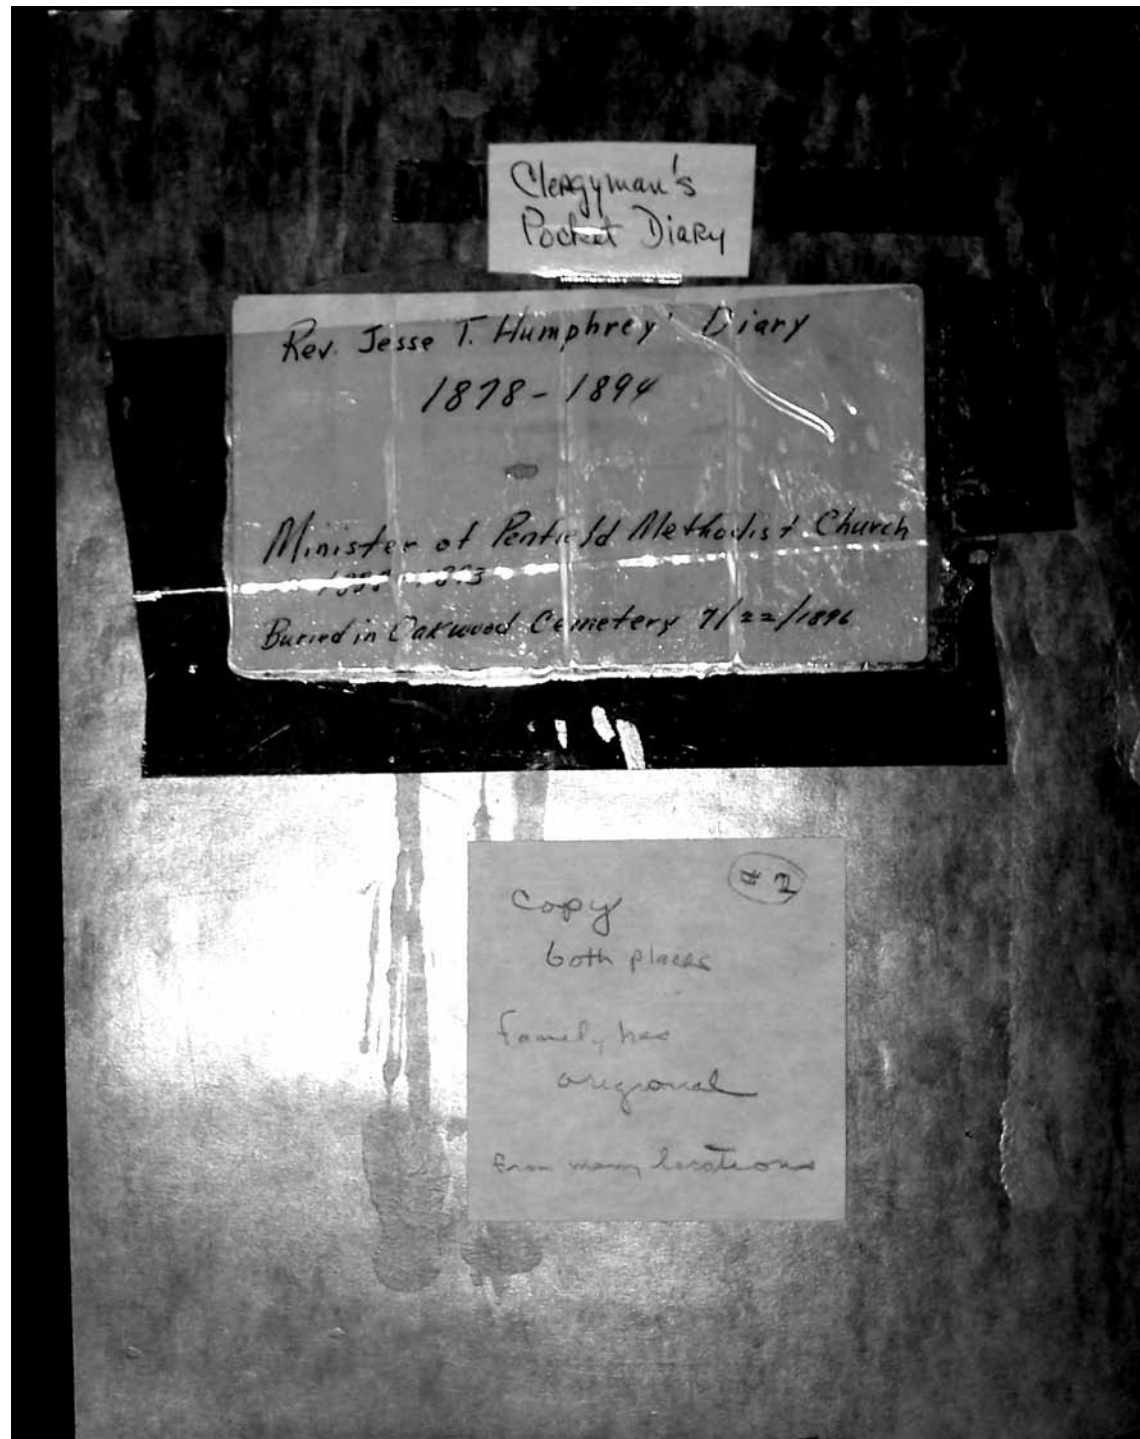 Clergyman's
Pocket Diary
Rev. Jesse T. Humphrey' Diary
1878-1894
Minister of Penfield Methodist Church
1893
Buried in Oakwood Cemetery 7/22/1896
#2
Copy
both places
Family has
origional
From many locations